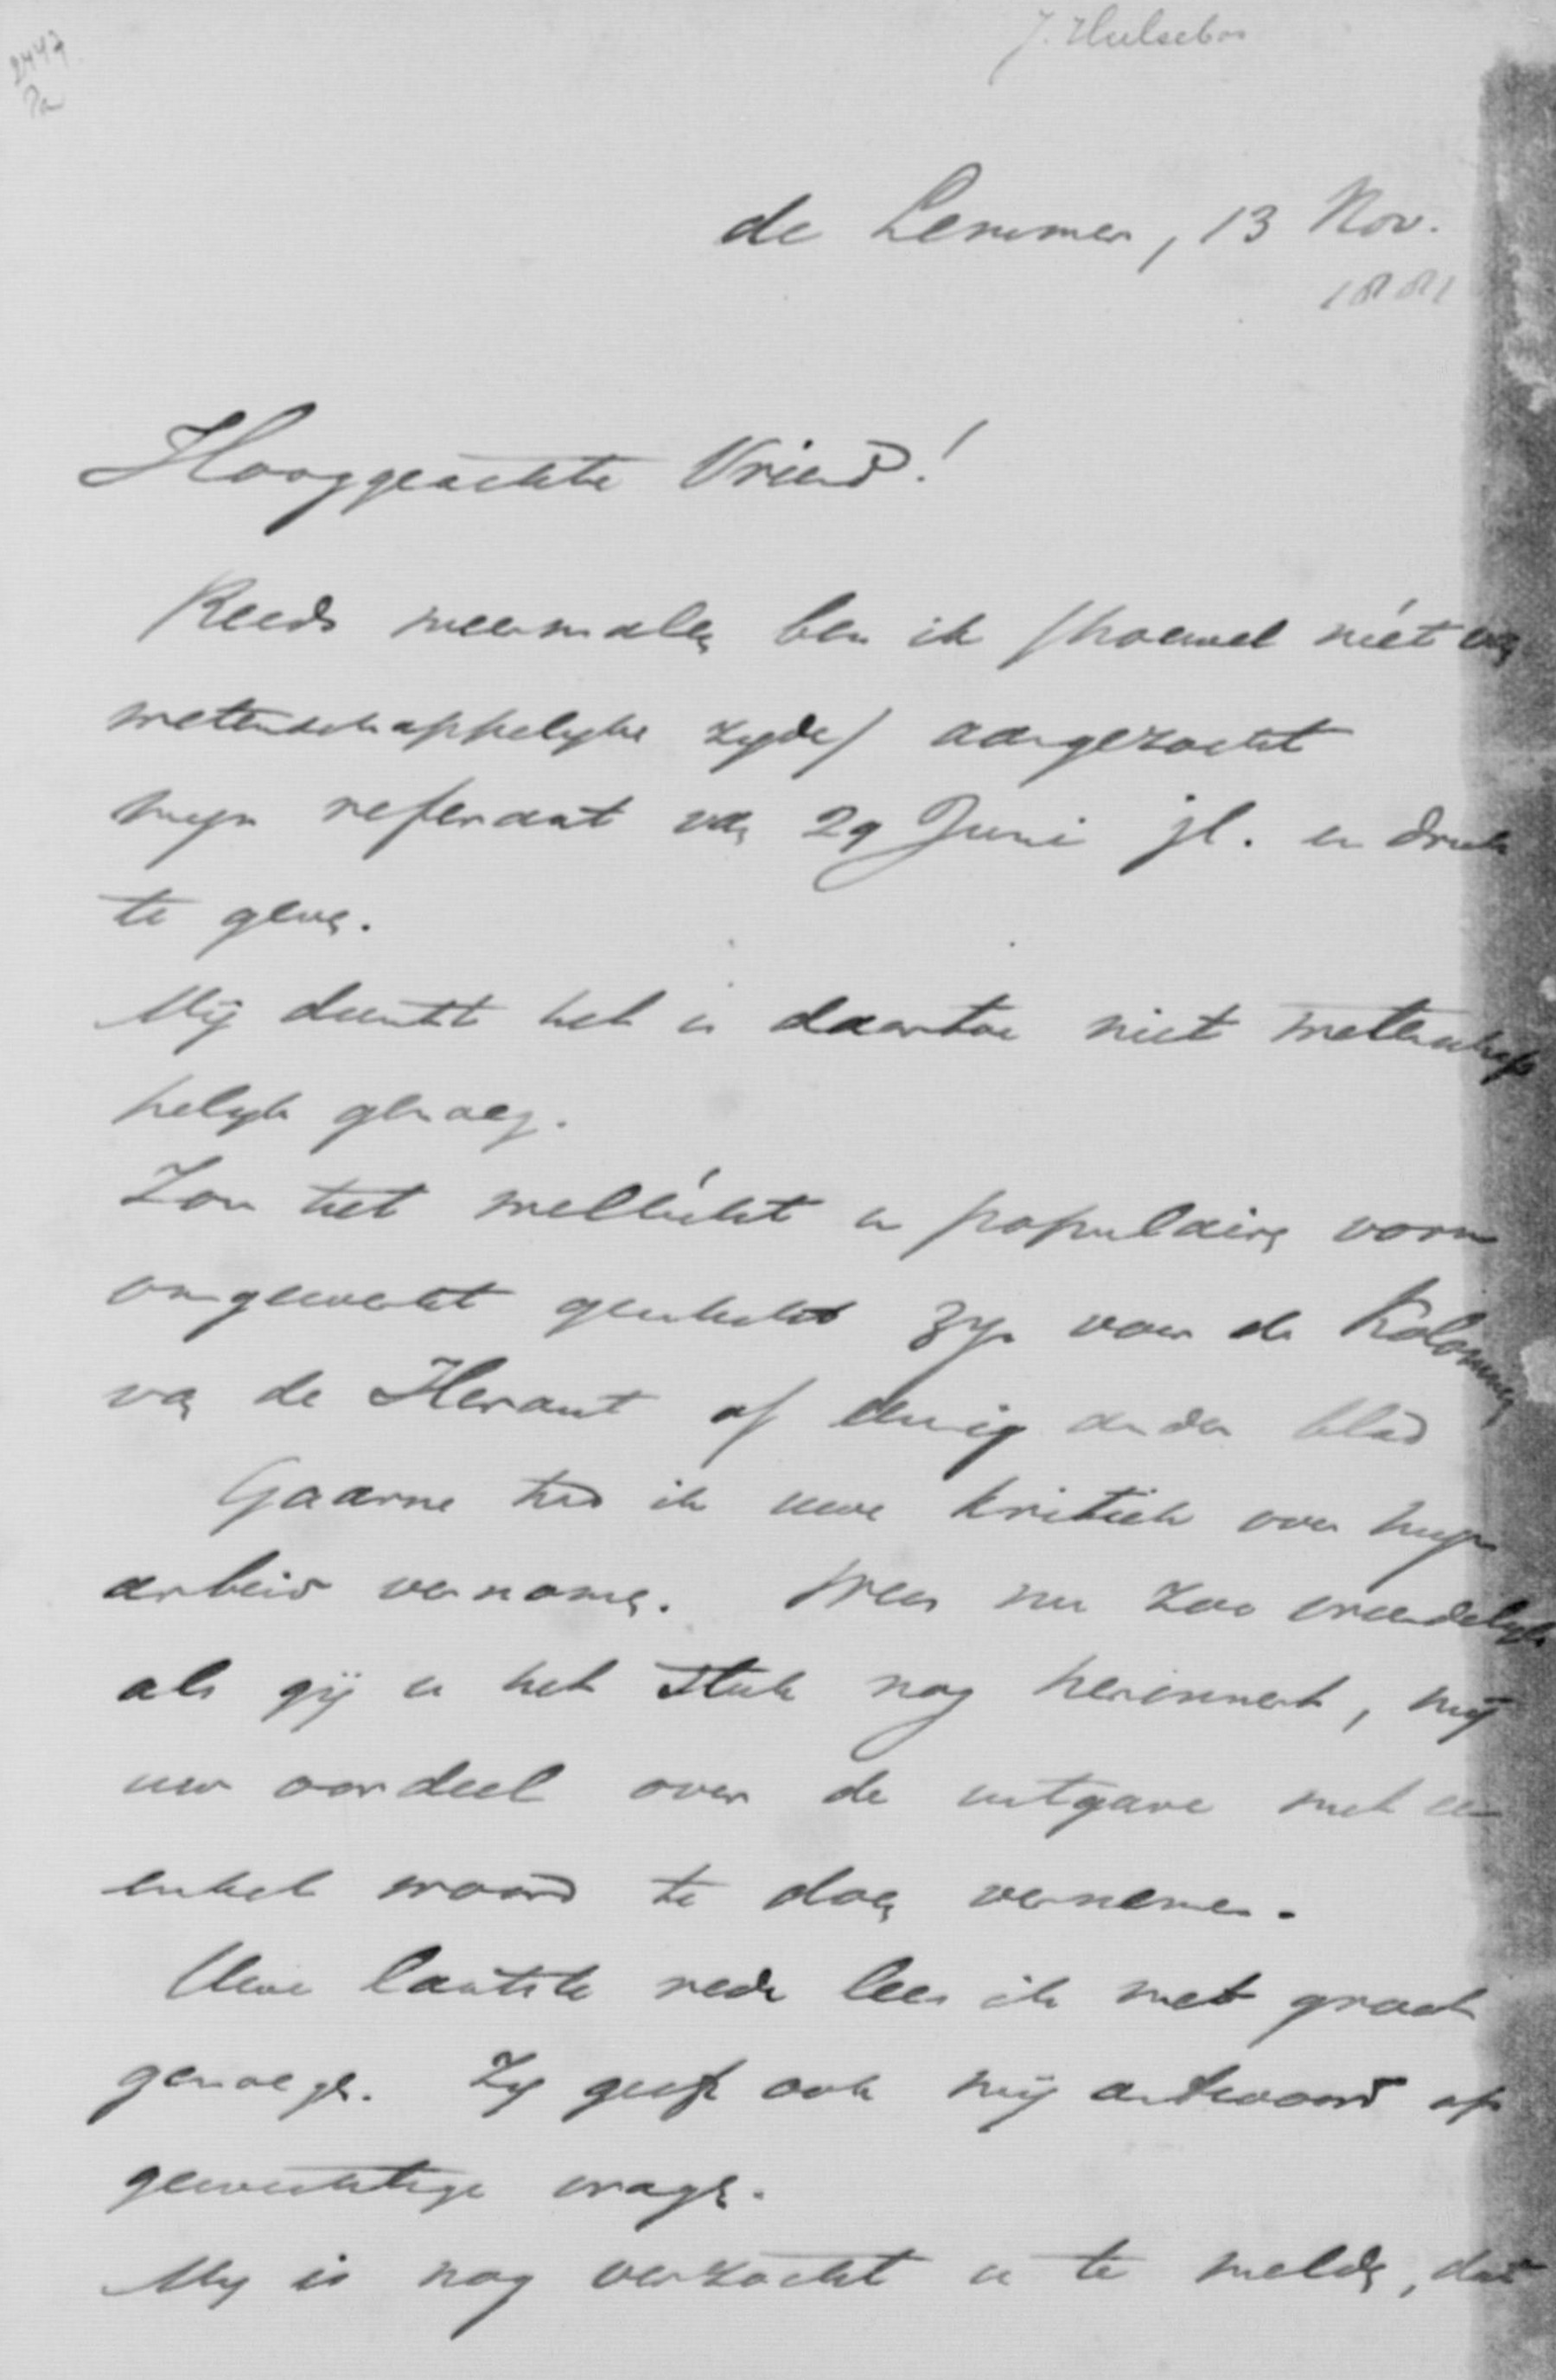 2447
J. Hulsebos
de Lemmer, 13 Nov.
1881
Hooggeachte Vriend!
Reeds meermalen ben ik (hoewel niét van
wetenschappelyke zyde) aangezocht
myn referaat van 29 Juni jl. in druk
te geven.
Mij dunkt het is daartoe niet wetenschap
pelyk genoeg.
Zou het wellicht in populairen vorm
omgewerkt geschikt zyn voor de Kolommen
van de Heraut of eenig ander blad
Gaarne had ik uwe kritiek over myn
arbeid vernomen. Wees nu zoo vriendelyk
als gij u het stuk nog herinnert, mij
uw oordeel over de uitgave met een
enkel woord te doen vernemen.
Uwe laatste rede lees ik met groot
genoegen. Zy geeft ook mij antwoord op
gewichtige vragen.
My is nog verzocht u te melden, dat